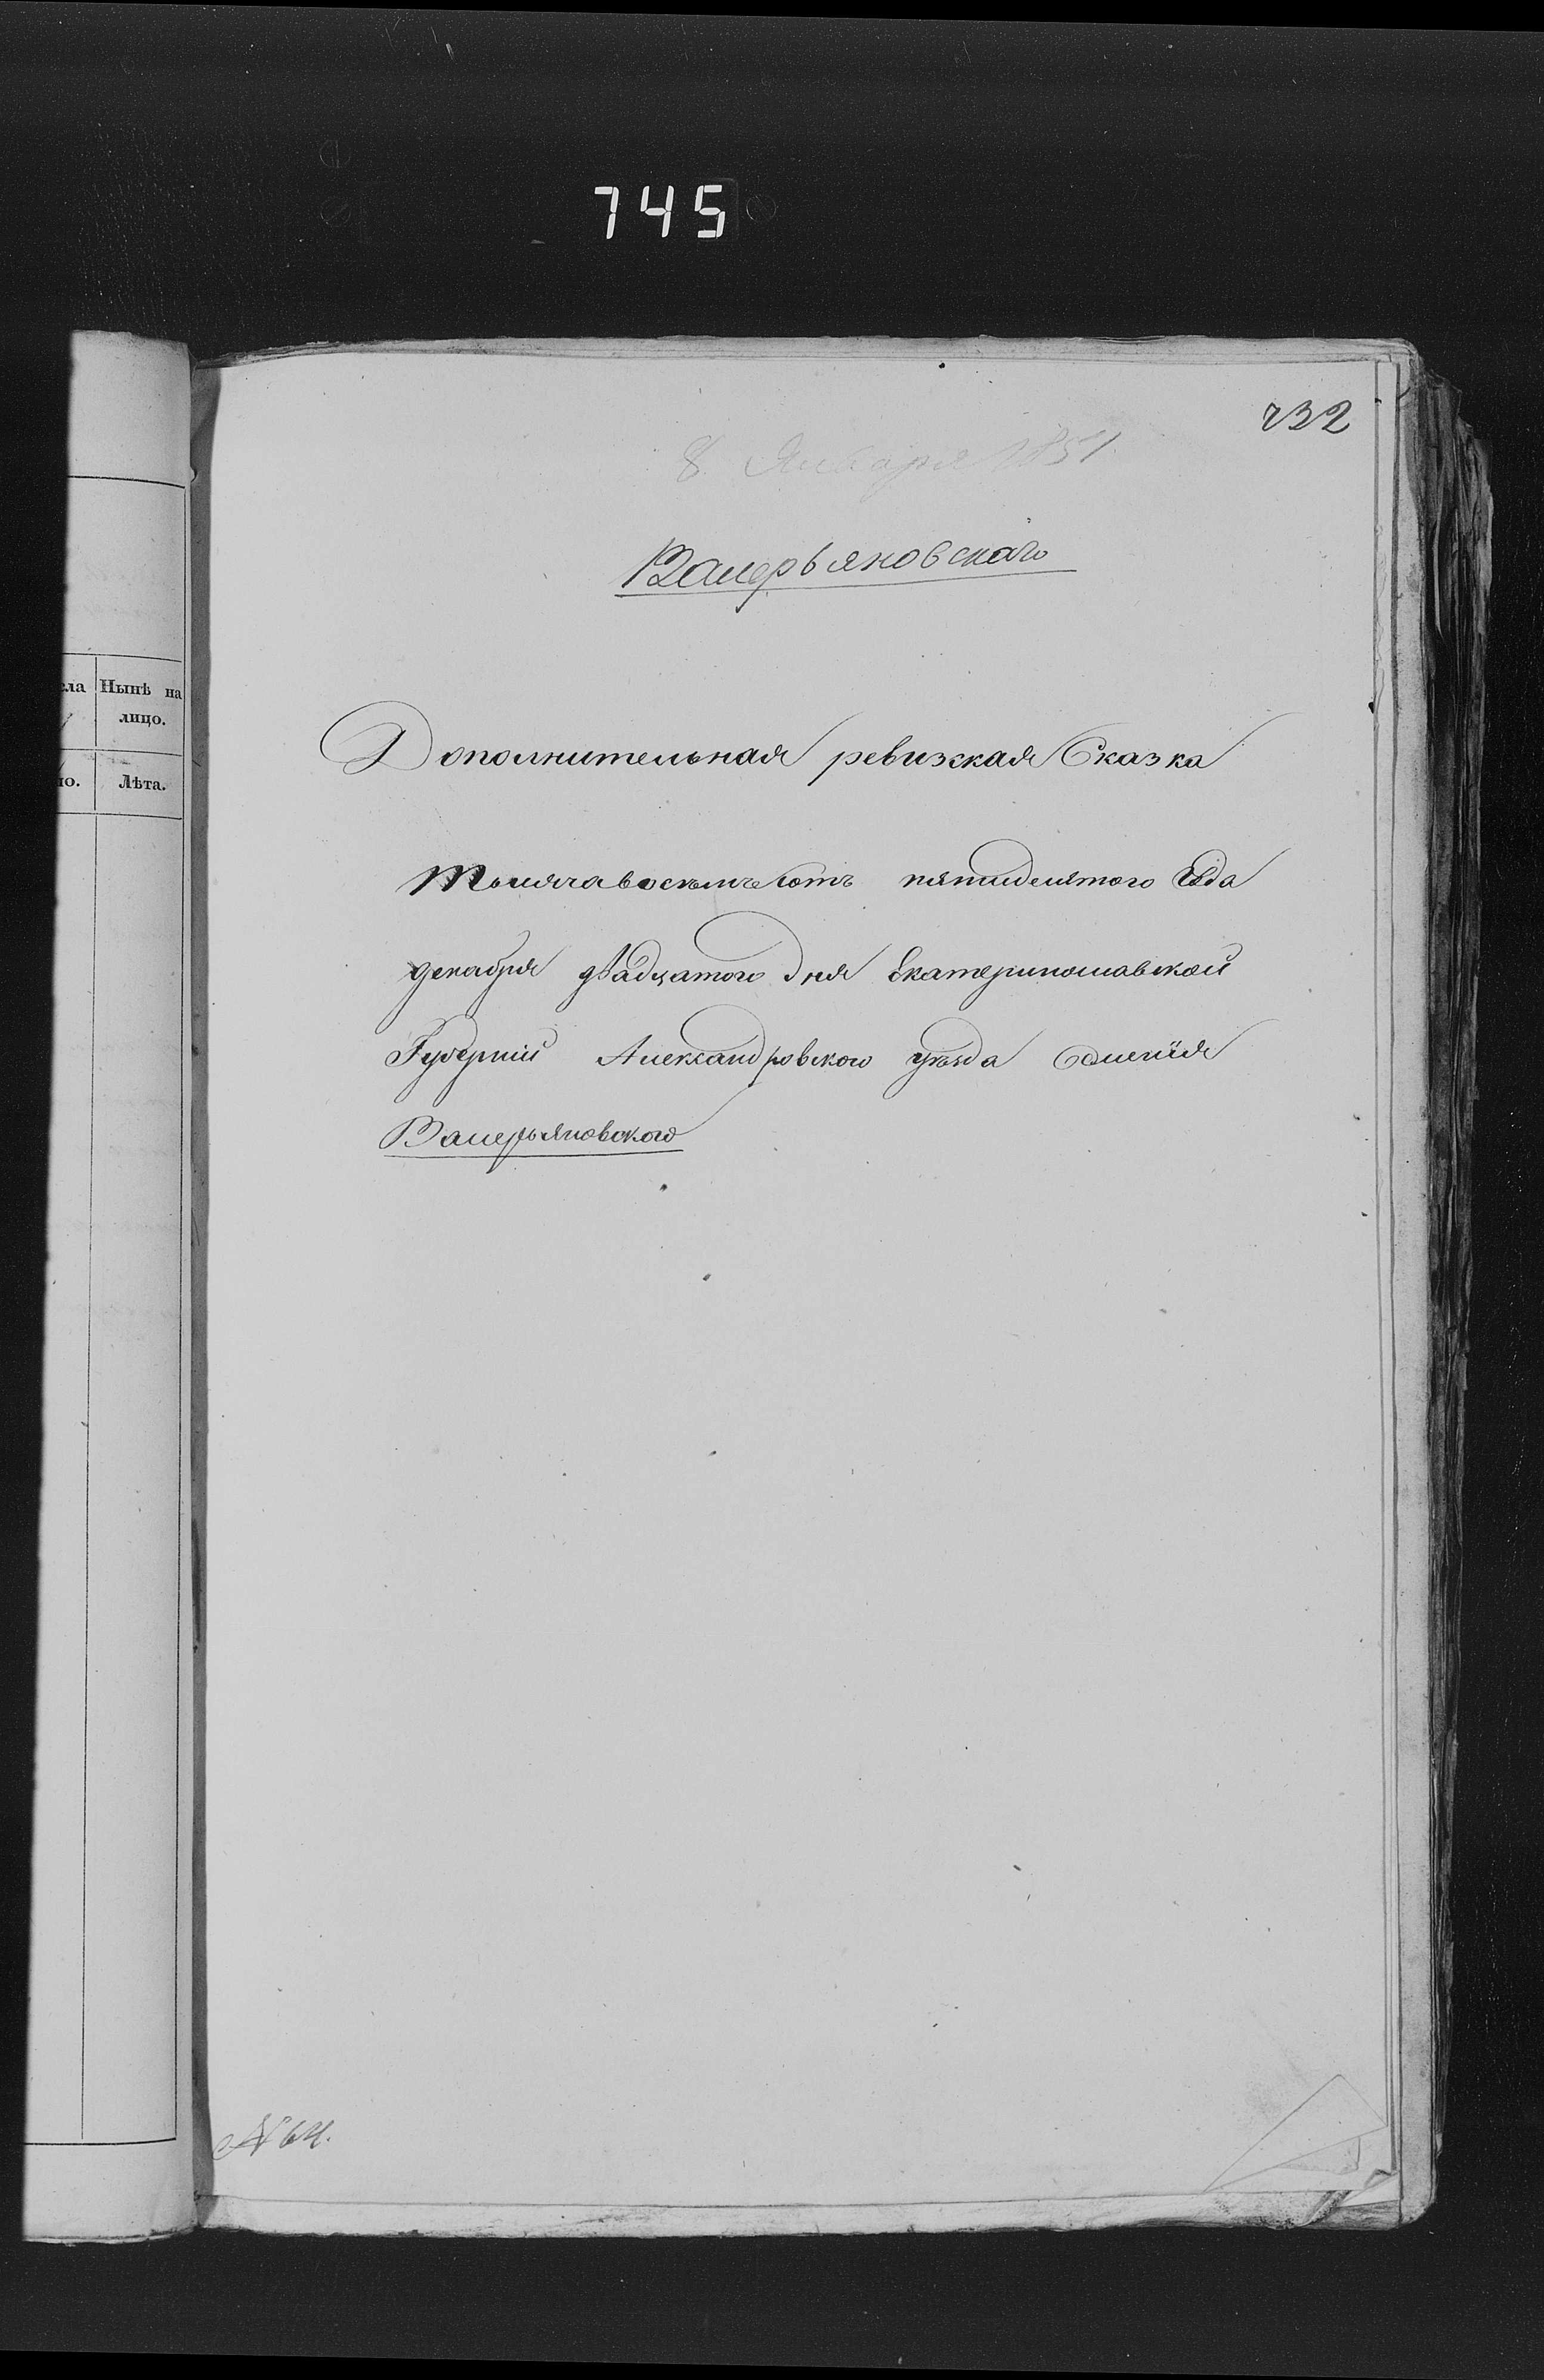 745
732
8 Января 1851
Валерьяновскаго
Дополнительная ревизская Сказка
тысяча восемьсотъ пятидесятого года
декабря двадцатого дня Екатеринославской
Губерніи Александровского уѣзда селенія
Валерьяновского
№ 64.
сла
Нынѣ на
лицо.
ло.
Лѣта.